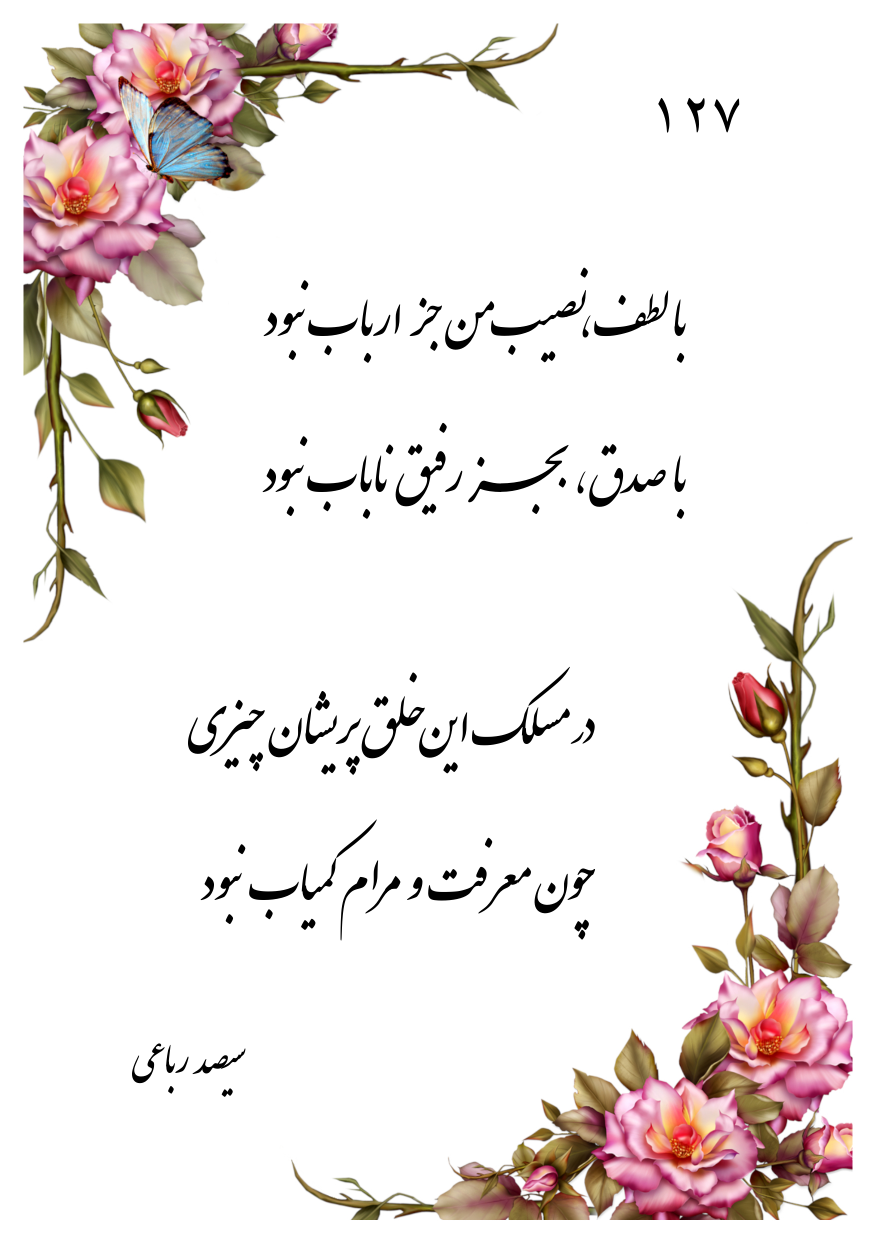 ۱۲۷
با لطف، نصیب من جز ارباب نبود
با صدق، بجز رفیق ناباب نبود
در مسلک این خلق پریشان چیزی
چون معرفت و مرام کمیاب نبود
سیصد رباعی